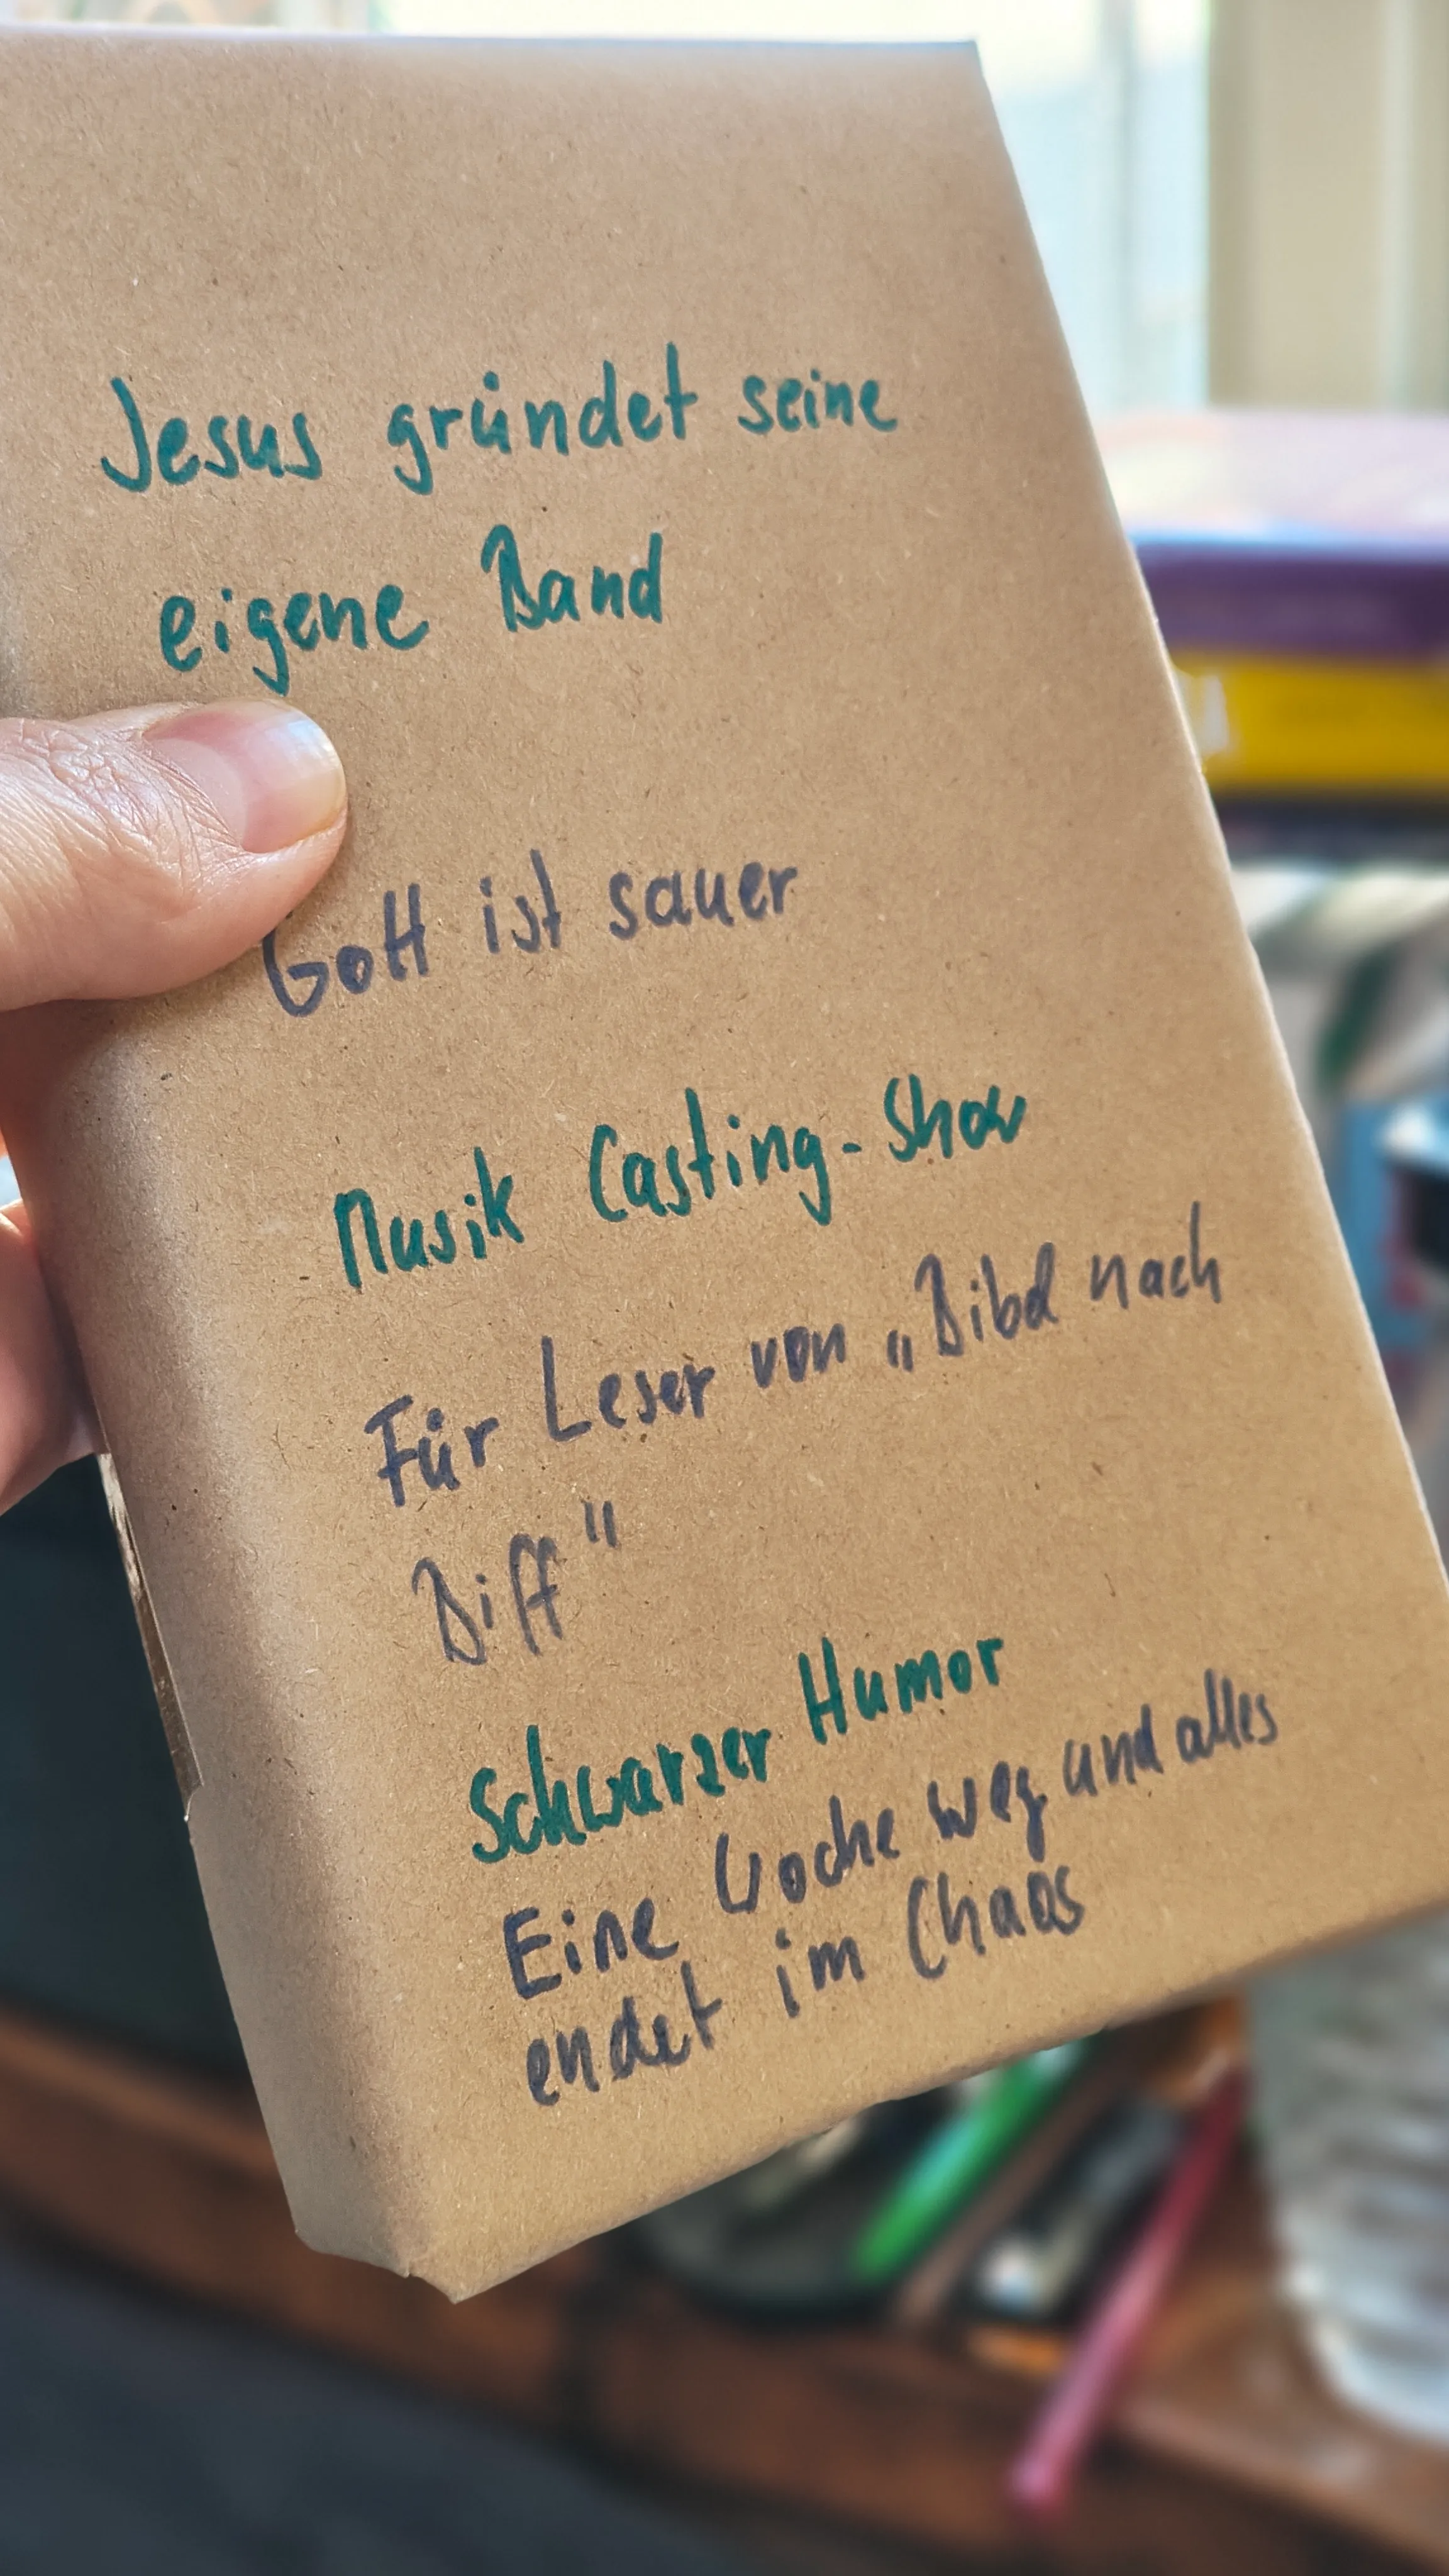 Jesus gründet seine
eigene Band
Gott ist sauer
Musik Casting-Show
Für Leser von „Bibel nach
Biff"
Schwarzer Humor
Eine Woche weg und alles
endet im Chaos